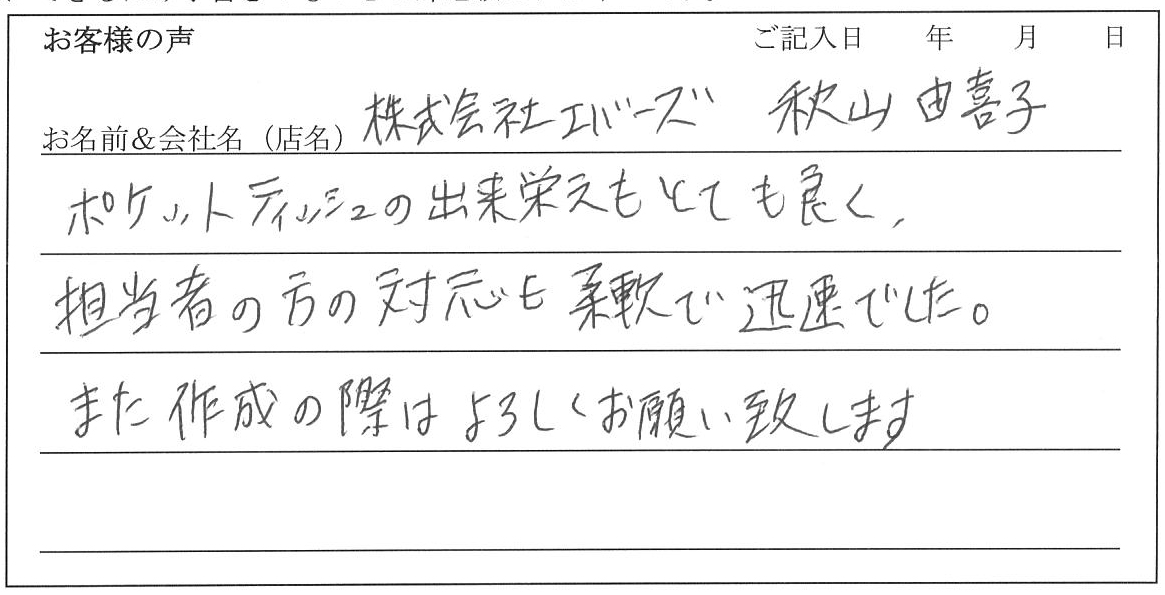 お客様の声 ご記入日 年 月 日
お名前&会社名(店名) 株式会社エバーズ 秋山由喜子
ポケットティッシュの出来栄えもとても良く、
担当者の方の対応も柔軟で迅速でした。
また作成の際はよろしくお願い致します